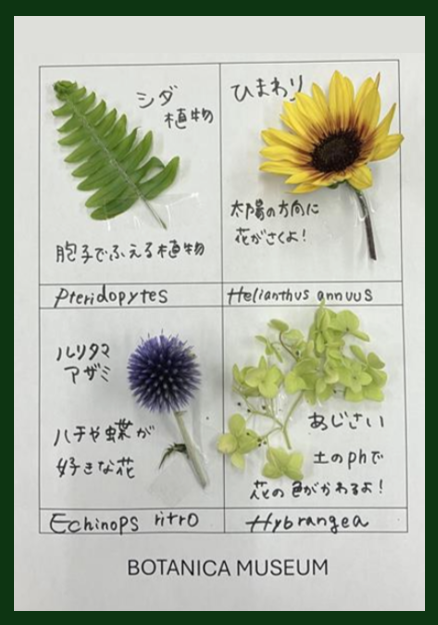 シダ
植物
胞子でふえる植物
Pteridopytes
ひまわり
太陽の方向に
花がさくよ!
Helianthus annuus
ルリタマ
アザミ
ハチや蝶が
好きな花
Echinops ritro
あじさい
土のphで
花の色がかわるよ!
Hybrangea
BOTANICA MUSEUM